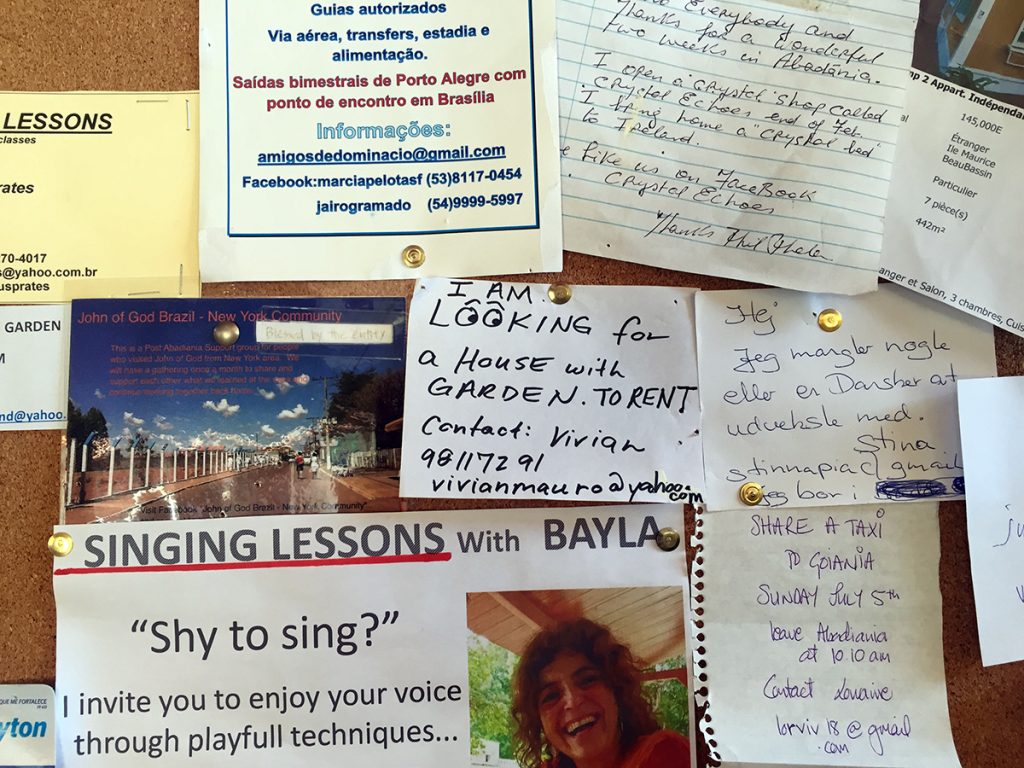 Guias autorizados
Via aérea, transfers, estadia e
alimentação.
Saídas bimestrais de Porto Alegre com
ponto de encontro em Brasília
Informações:
amigosdedominacio@gmail.com
Facebook:marciapelotasf (53)8117-0454
jairogramado (54)9999-5997
Everybody and
thanks for a wonderful
two weeks in Abadânia.
I open a "crystal" shop called
Crystal Echoes end of Feb
I bring home a "crystal bed"
to Ireland.
Like us on FaceBook
Crystal Echoes
Thanks Phil
2 Appart. Indépendant
145,000E
Étranger
Ile Maurice
BeauBassin
Particulier
7 pièce(s)
442m²
anger et Salon, 3 chambres, Cuis
LESSONS
classes
prates
70-4017
s@yahoo.com.br
usprates
GARDEN
M
nd@yahoo.
John of God Brazil - New York Community
Blessed by the entity
This is a Post Abadiania Support group for people
who visited John of God from New York area. We
will have a gathering once a month to share and
support each other what we learned at the casa and
continue meeting together back home.
Visit Facebook "John of God Brazil - New York Community"
I AM
LOOKING for
a HOUSE with
GARDEN. TO RENT
Contact: Vivian
98117291
vivianmauro@yahoo.com
Hej
Jeg mangler nogle
eller en Dansker at
udveksle med.
Stina
stinnapia@gmail
jeg bor i
SINGING LESSONS With BAYLA
"Shy to sing?"
I invite you to enjoy your voice
through playfull techniques...
SHARE A TAXI
TO GOIANIA
SUNDAY JULY 5th
leave Abadiania
at 10.10 am
Contact Louaine
lorviv18@gmail
.com
QUE ME FORTALECE
yton
ju